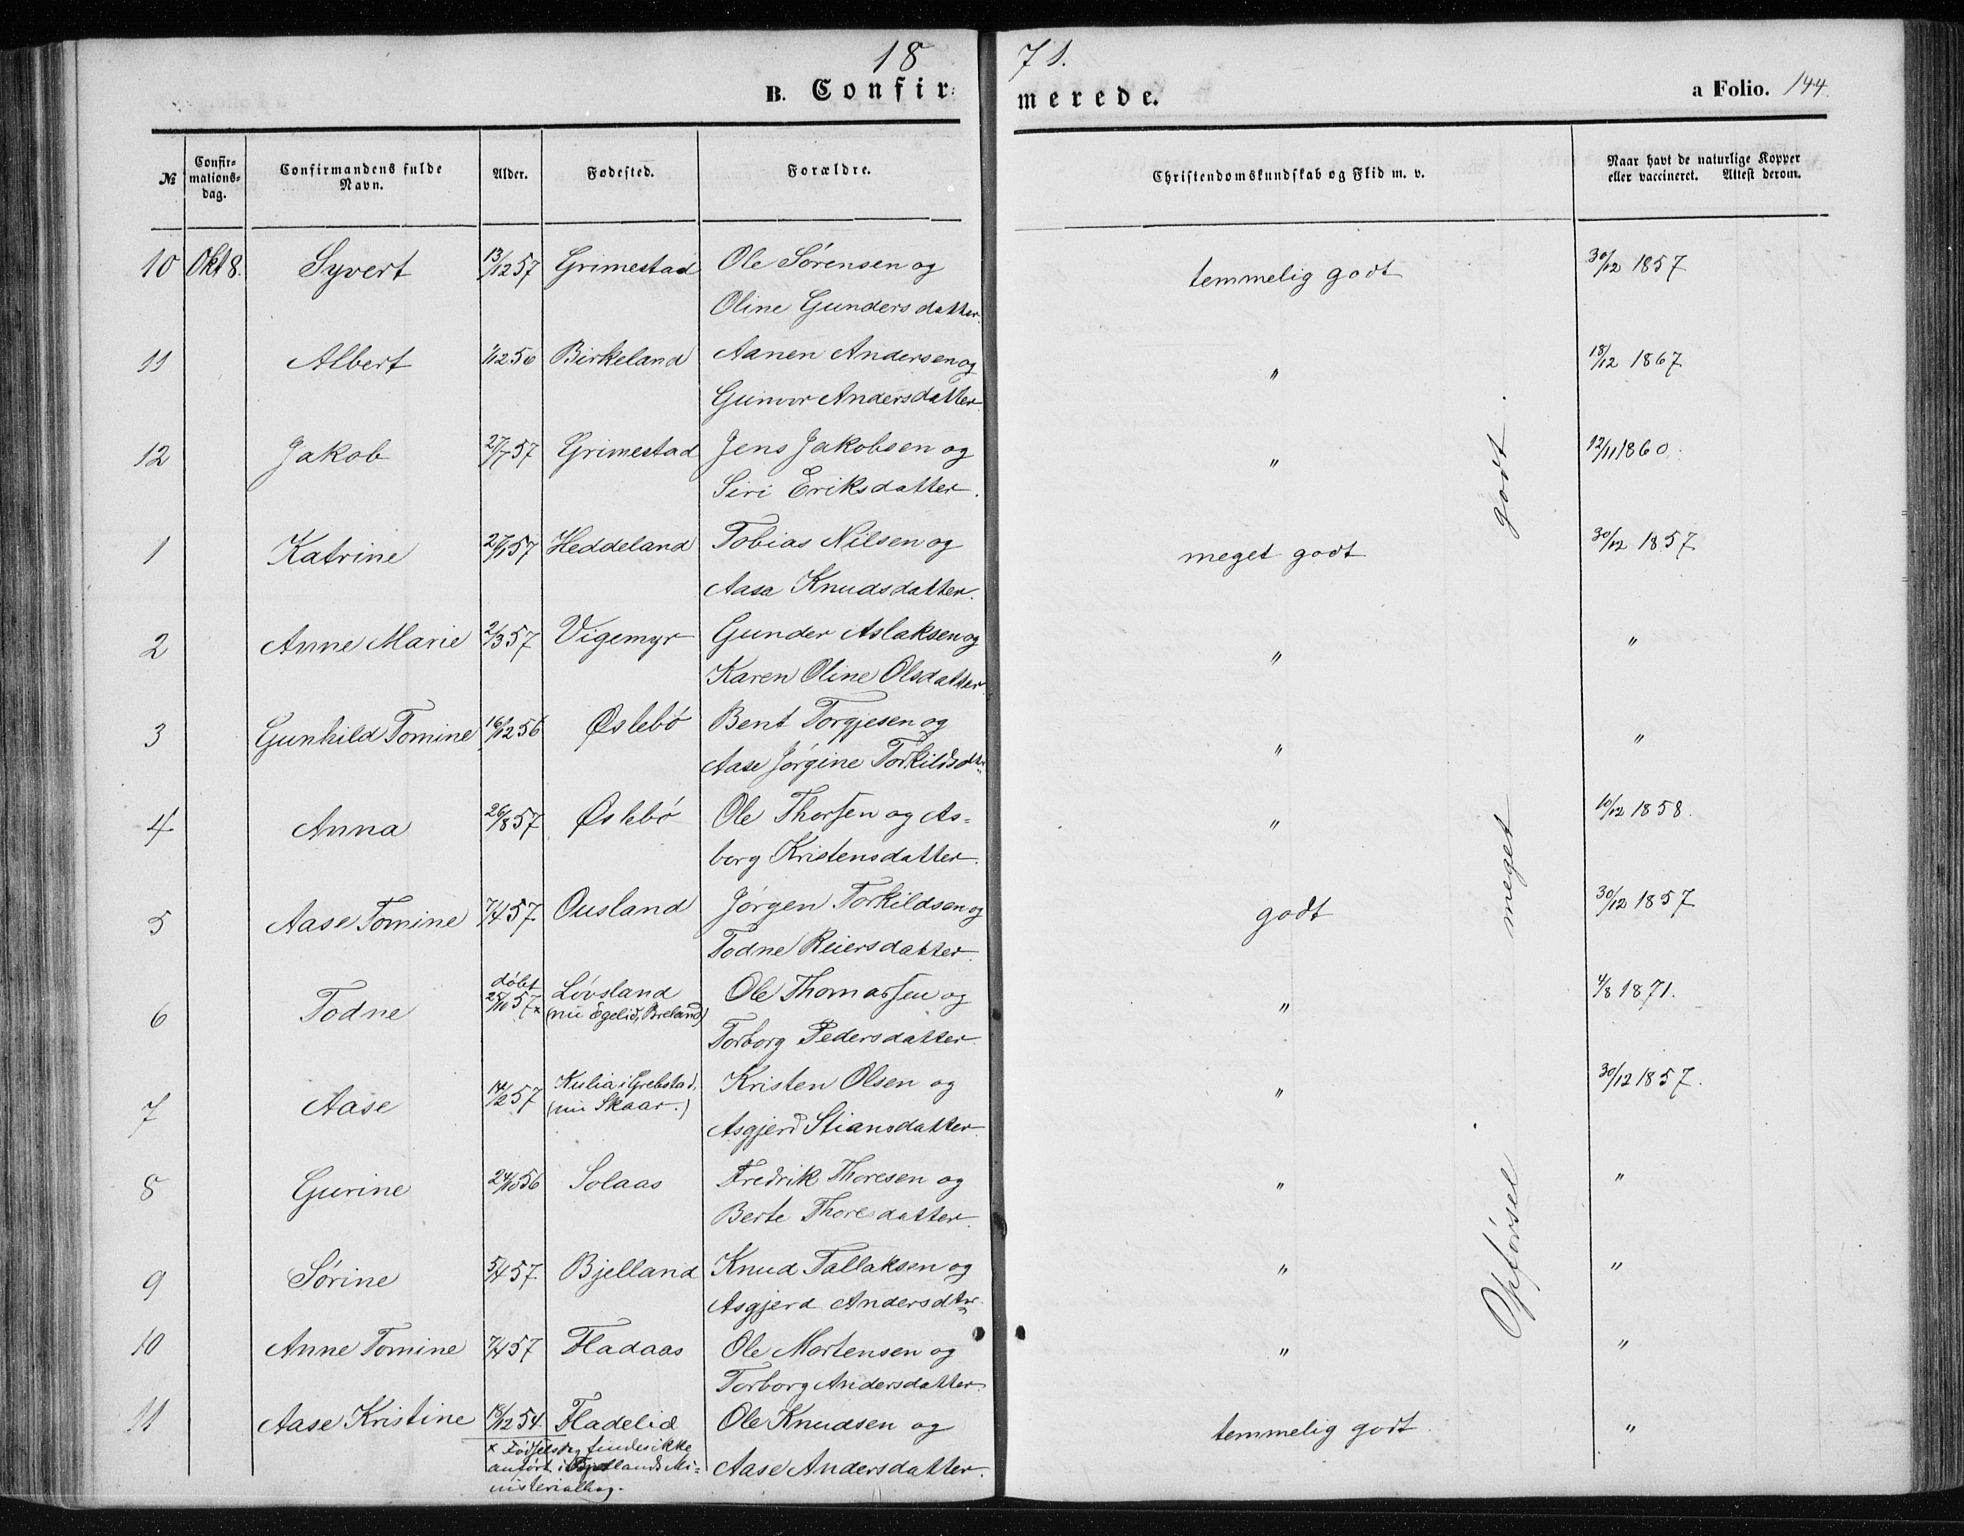 1871.
B. Confirmerede.
a Folio. 144.
№ Confirmations-dag. Confirmandens fulde Navn. Alder. Fødested. Forældre. Christendomskundskab og Flid m. v. Naar havt de naturlige Kopper eller vaccineret. Attest derom.
10 Okt 8. Syvert 13/12 57 Grimestad Ole Sørensen og temmelig godt 30/12 1857
Oline Gundersdatter.
11 Albert 1/12 56 Birkeland Aanen Andersen og " 18/12 1867
Gunvor Andersdatter.
12 Jakob 27/7 57 Grimestad Jens Jakobsen og " 12/11 1860.
Siri Eriksdatter.
1 Katrine 27/1 57 Heddeland Tobias Nilsen og meget godt 30/12 1857
Aasa Knudsdatter.
2 Anne Marie 2/3 57 Vigemyr Gunder Aslaksen og " "
Karen Oline Olsdatter.
3 Gunhild Tomine 16/12 56 Øslebø Bent Torgjesen og " "
Aase Jørgine Torkildsdtr.
4 Anna 26/8 57 Øslebø Ole Thorsen og As- " 10/12 1858.
borg Kristensdatter.
5 Aase Tomine 7/4 57 Ousland Jørgen Torkildsen og godt 30/12 1857
Todne Reiersdatter.
6 Todne døbt 25/10 57 x Løvsland (nu Egelid, Breland) Ole Thomassen og " 4/8 1871.
Torborg Pedersdatter.
7 Aase 14/2 57 Kulia i Grebstad, (nu Skaar.) Kristen Olsen og " 30/12 1857.
Asgjerd Stiansdatter.
8 Gurine 24/10 56 Solaas Fredrik Thoresen og " "
Berte Thoresdatter.
9 Sørine 5/4 57 Bjelland Knud Tallaksen og " "
Asgjerd Andersdtr.
10 Anne Tomine 7/4 57 Fladaas Ole Mortensen og " "
Torborg Andersdatter.
11 Aase Kristine 18/12 54 Fladelid Ole Knudsen og temmelig godt "
Aase Andersdatter.
x Fødselsdag findes ikke
anført i Bjellands Mi-
nisterialbog.
Opførsel meget godt.